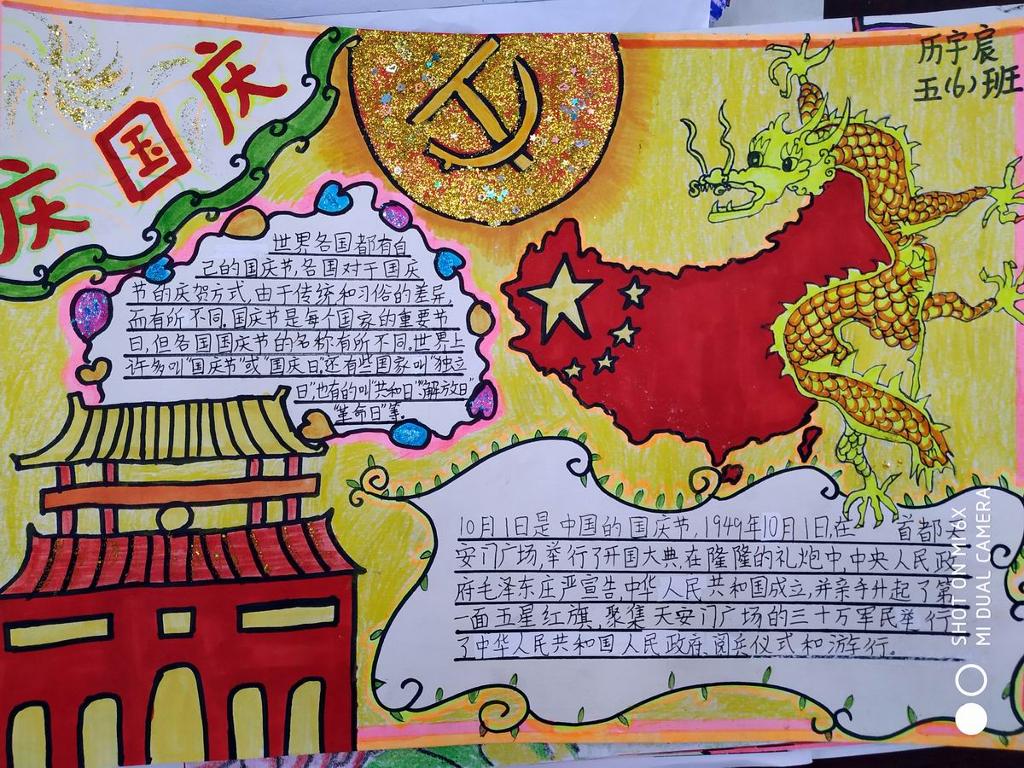 庆国庆
历宇宸
五(6)班
世界各国都有自
己的国庆节,各国对于国庆
节的庆贺方式,由于传统和习俗的差异,
而有所不同。国庆节是每个国家的重要节
日,但各国国庆节的名称有所不同。世界上
许多叫“国庆节”或“国庆日”,还有些国家叫“独立
日”,也有的叫“共和日”、“解放日”
“革命日”等。
10月1日是中国的国庆节,1949年10月1日,在 首都天
安门广场,举行了开国大典,在隆隆的礼炮中,中央人民政
府毛泽东庄严宣告,中华人民共和国成立,并亲手升起了第
一面五星红旗,聚集天安门广场的三十万军民举行
了中华人民共和国人民政府,阅兵仪式和游行。
SHOT ON MI 6X
MI DUAL CAMERA